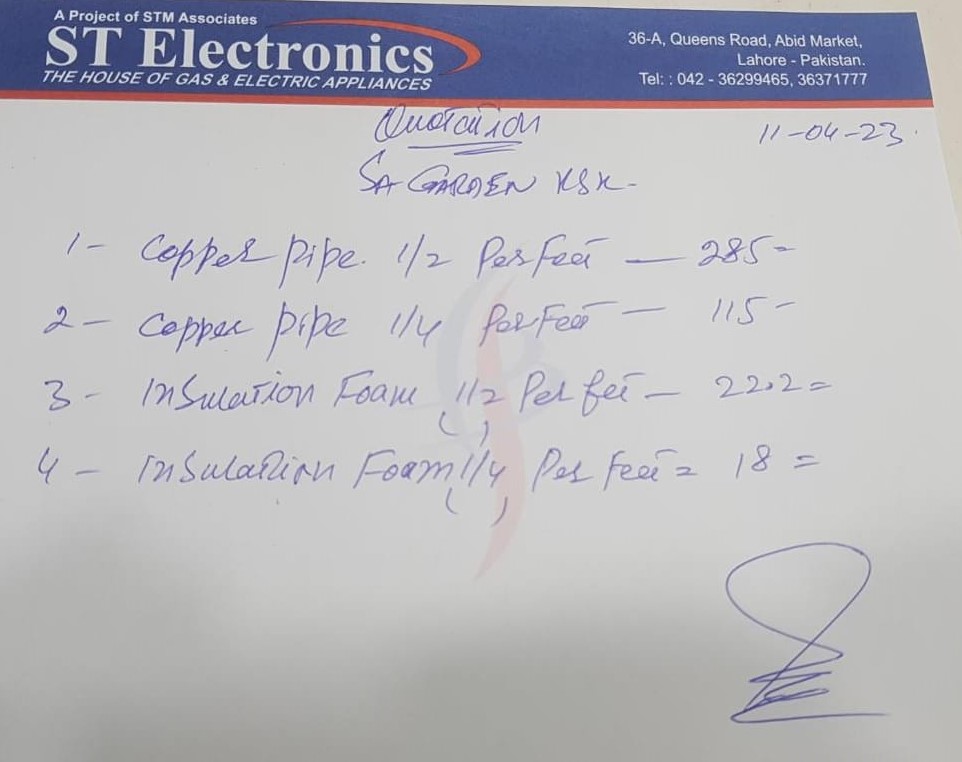 A Project of STM Associates
ST Electronics
THE HOUSE OF GAS & ELECTRIC APPLIANCES
36-A, Queens Road, Abid Market,
Lahore - Pakistan.
Tel: : 042 - 36299465, 36371777
Quotation
11-04-23
SA GARDEN KSK-
1- Copper pipe. 1/2 Per Feet — 285=
2- Copper pipe 1/4 Per Feet — 115-
3- Insulation Foam (1/2) Per feet — 22.2=
4- Insulation Foam (1/4) Per Feet = 18 =